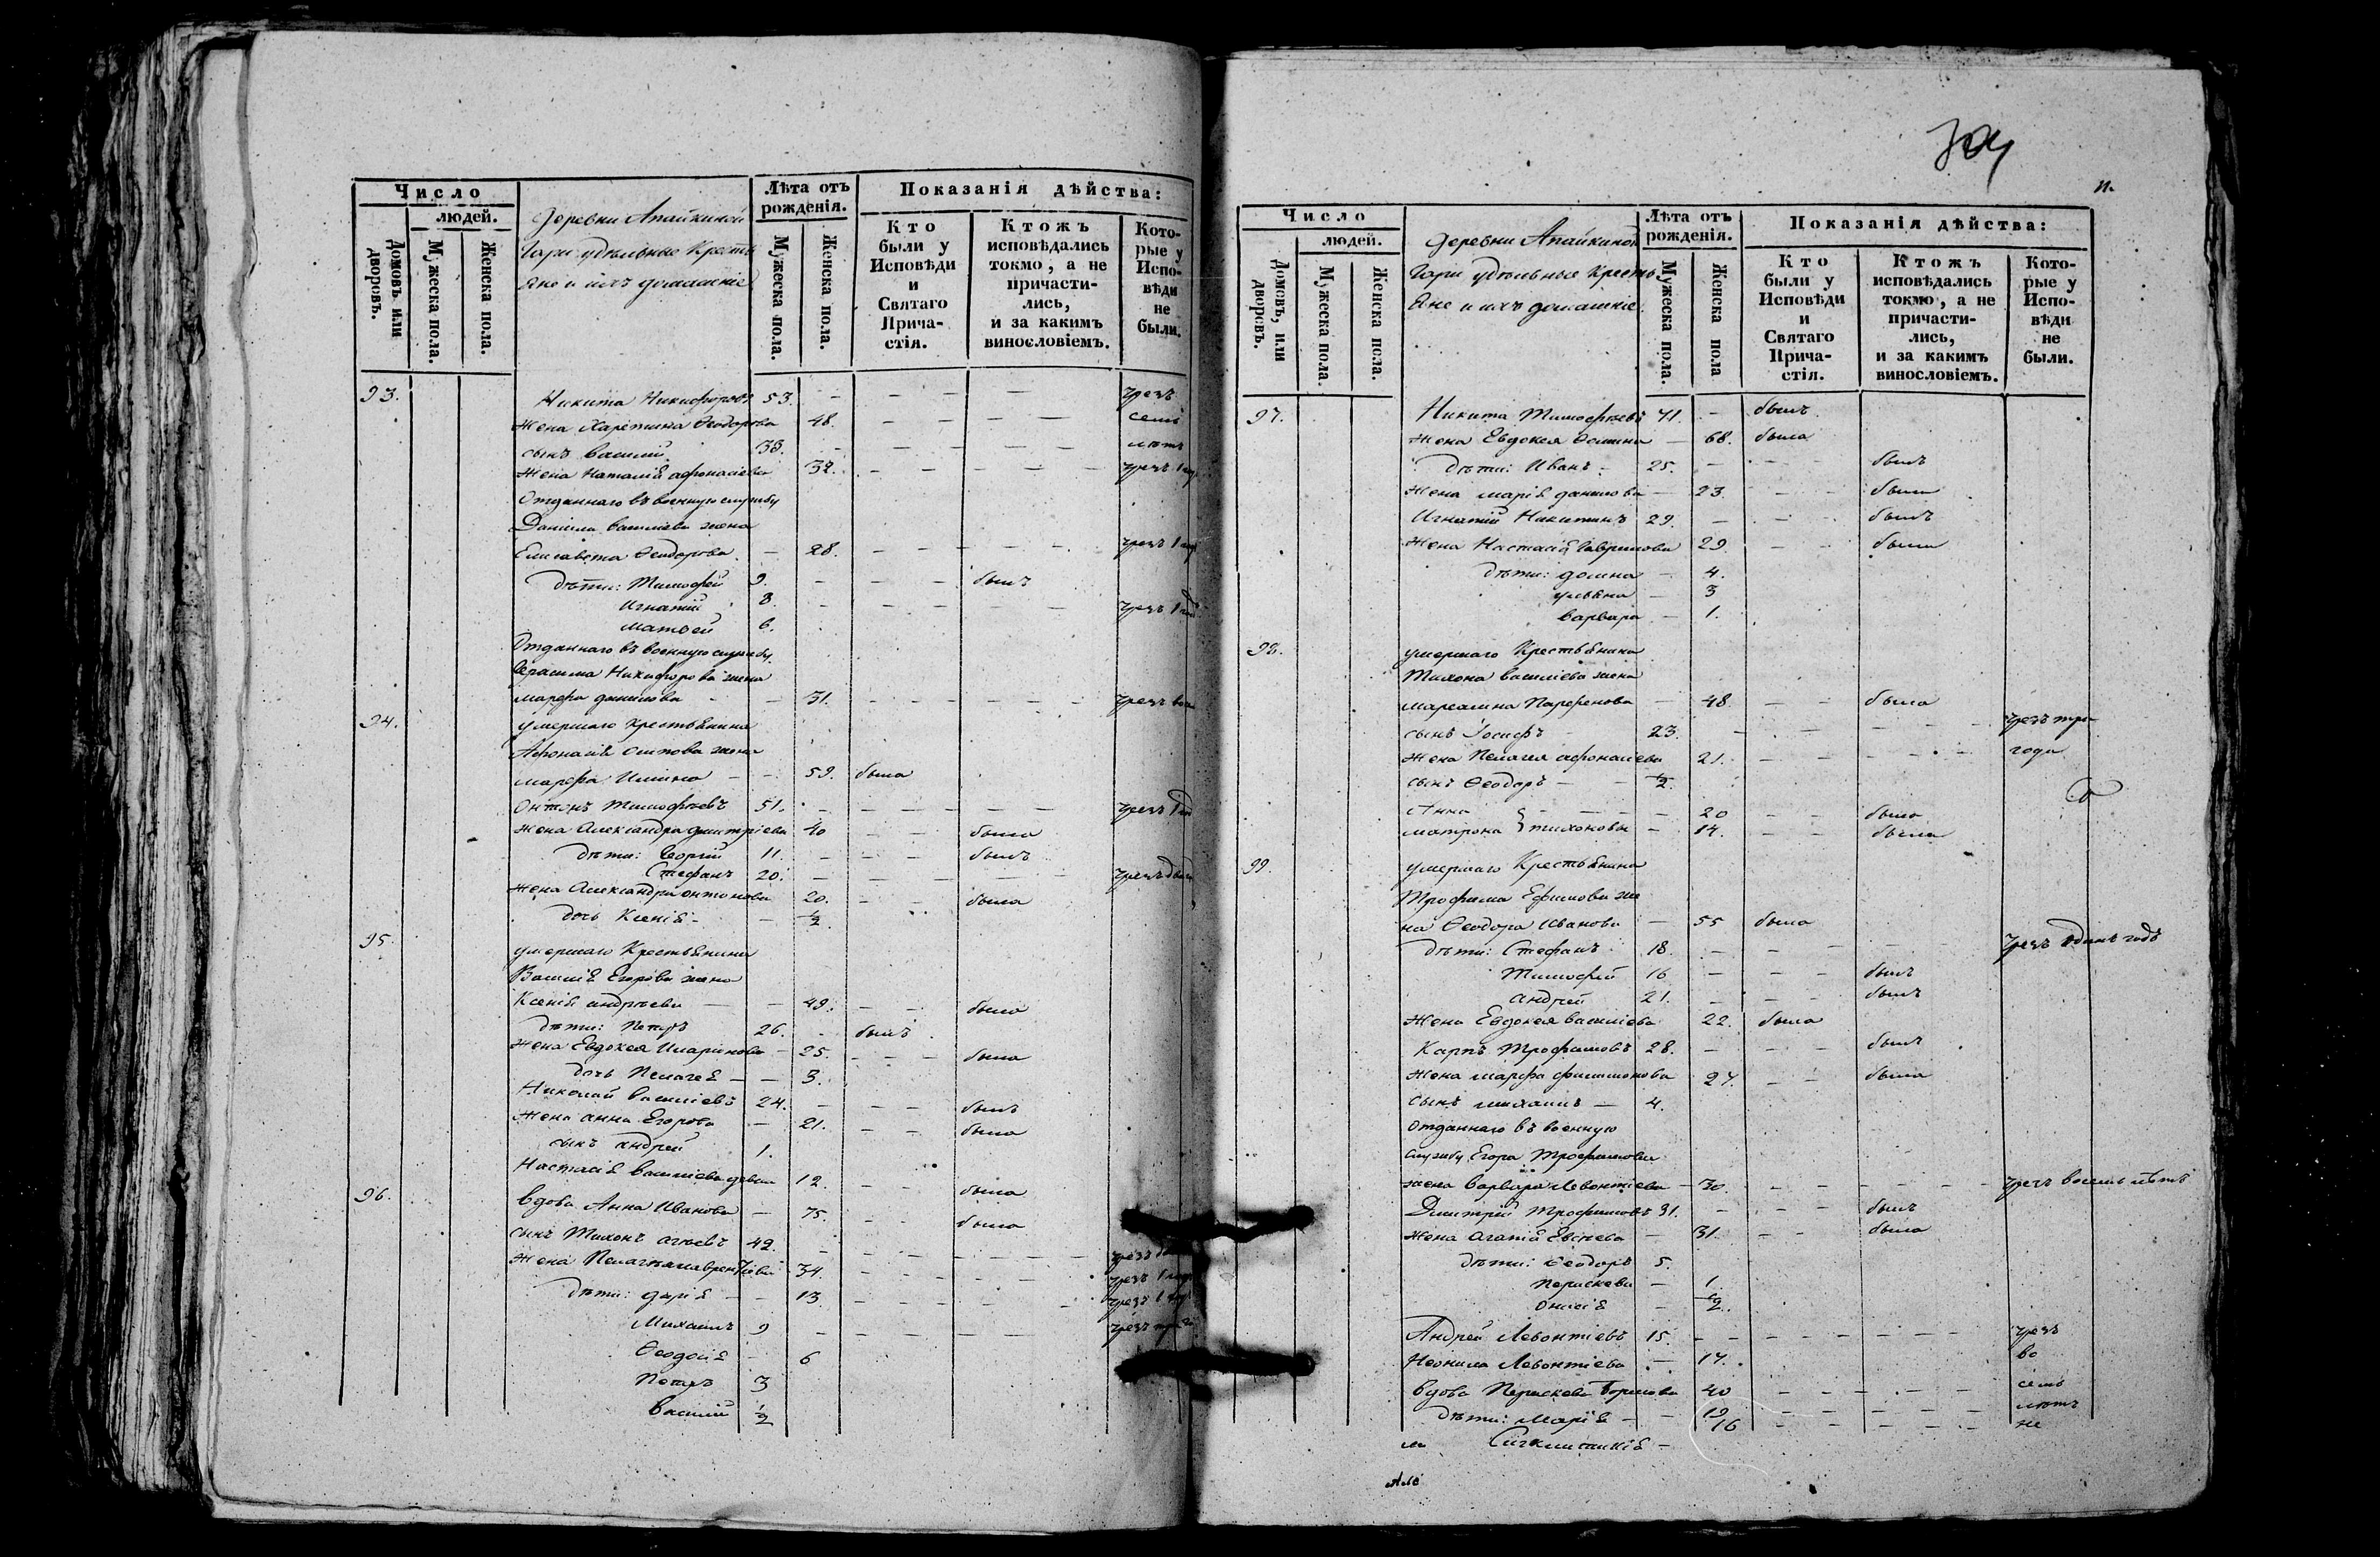 Число
людей.
Домовъ или дворовъ.
Мужеска пола.
Женска пола.
Деревни Апайкиной
Гари удѣльные Кресть
яне и ихъ домашніе
Лѣта отъ рожденія.
Мужеска пола.
Женска пола.
Показанія дѣйства:
Кто были у Исповѣди и Святаго Причастія.
Ктожъ исповѣдались токмо, а не причасти-лись, и за какимъ винословіемъ.
Кото-рые у Испо-вѣди не были.
93. Никита Никифоровъ 53. — — — — чрезъ
Жена Харетина Ѳеодорова 48. — — — семь
сынъ Василий 38. — — — лѣтъ
Жена Наталія Афонасіева 32. — — — — чрезъ 1
Отданнаго въ военную службу
Даніила Василіева жена
Елисавета Ѳеодорова — 28. — — — — чрезъ 1
дѣти: Тимофей 9. — — — былъ
Игнатий 8. — — — — чрезъ 1 год
Матвей 6.
Отданнаго въ военную службу
Герасима Никифорова жена
Марфа Данилова — 31. — — — — чрезъ
94. умершаго Крестьянина
Афонасія Осипова жена
Марфа Ильина — — 59. была
Онтонъ Тимофѣевъ 51. — — — — чрезъ 1
Жена Александра Дмитріева 40 — — была
дѣти: Георгій 11. — — — былъ
Стефанъ 20. — — — — чрезъ
Жена Александра Онтонова 20. — — была
дочь Ксенія — — ½
95. умершаго Крестьянина
Василія Егорова жена
Ксенія Андрѣева — — 49. — — была
дѣти: Петръ 26. — былъ
Жена Евдокея Иларіонова — 25. — — — была
дочь Пелагея — — 3.
Николай Василіевъ 24. — — — былъ
Жена Анна Егорова — 21. — — была
сынъ Андрей 1.
Настасія Василіева девка 12. — — была
96. Вдова Анна Иванова — 75. — — была
сынъ Тихонъ 42. — — — — чрезъ
Жена Пелагея Лаврентіева 34. — — — — чрезъ 1
дѣти: Дарія — — 13. — — — — чрезъ 1
Михаилъ 9 — — — — чрезъ
Ѳеодосія — 6
Петръ 3
Василий ½
Число
людей.
Домовъ, или дворовъ.
Мужеска пола.
Женска пола.
Деревни Апайкиной
Гари удѣльные Кресть
яне и ихъ домашніе
Лѣта отъ рожденія.
Мужеска пола.
Женска пола
Показанія дѣйства:
Кто были у Исповѣди и Святаго Причастія.
Ктожъ исповѣдались токмо, а не причасти-лись, и за какимъ винословіемъ.
Кото-рые у Испо-вѣди не были.
97. Никита Тимофѣевъ 71. — былъ
Жена Евдокея — 68. была
дѣти: Иванъ — 25. — — — былъ
Жена Марія Данилова — 23. — — была
Игнатій Никитинъ 29. — — былъ
Жена Настасія Гаврилова 29. — — была
дѣти: Домна — 4.
Ульяна — 3
Варвара — 1.
98. умершаго Крестьянина
Тихона Василіева жена
Парфенова — 48. — — была
сынъ Іосифъ — 23. — — — — чрезъ три
Жена Пелагея Афонасіева 21. — — — — года
сынъ Ѳеодоръ — ½
Анна } — — — 20 — — была
Матрона } Тихоновы — 14. — — была
99. умершаго Крестьянина
Трофима Ефимова же
на Ѳеодора Иванова — 55 была
дѣти: Стефанъ 18. — — — — чрезъ одинъ годъ
Тимофей 16 — — — былъ
Андрей 21. — — — былъ
Жена Евдокея Василіева 22. была
Карпъ Трофимовъ 28. — — — былъ
Жена Марфа Филимонова 27. — — была
сынъ Михаилъ — 4.
Отданнаго въ военную
службу Егора Трофимова
жена Варвара Левонтіева — 30. — — — — чрезъ восемь лѣтъ
Дмитрій Трофимовъ 31. — — — былъ
Жена Агапія — 31. — — была
дѣти: Ѳеодоръ 5.
Параскева — 1
Онисія — ½.
Андрей Левонтіевъ 15. — — — — чрезъ
Неонила Левонтіева — 17. во
Вдова Параскева Борисова 40 — — — — семь
дѣти: Марія — — 19 — — — — лѣтъ
— 16 — — — — не